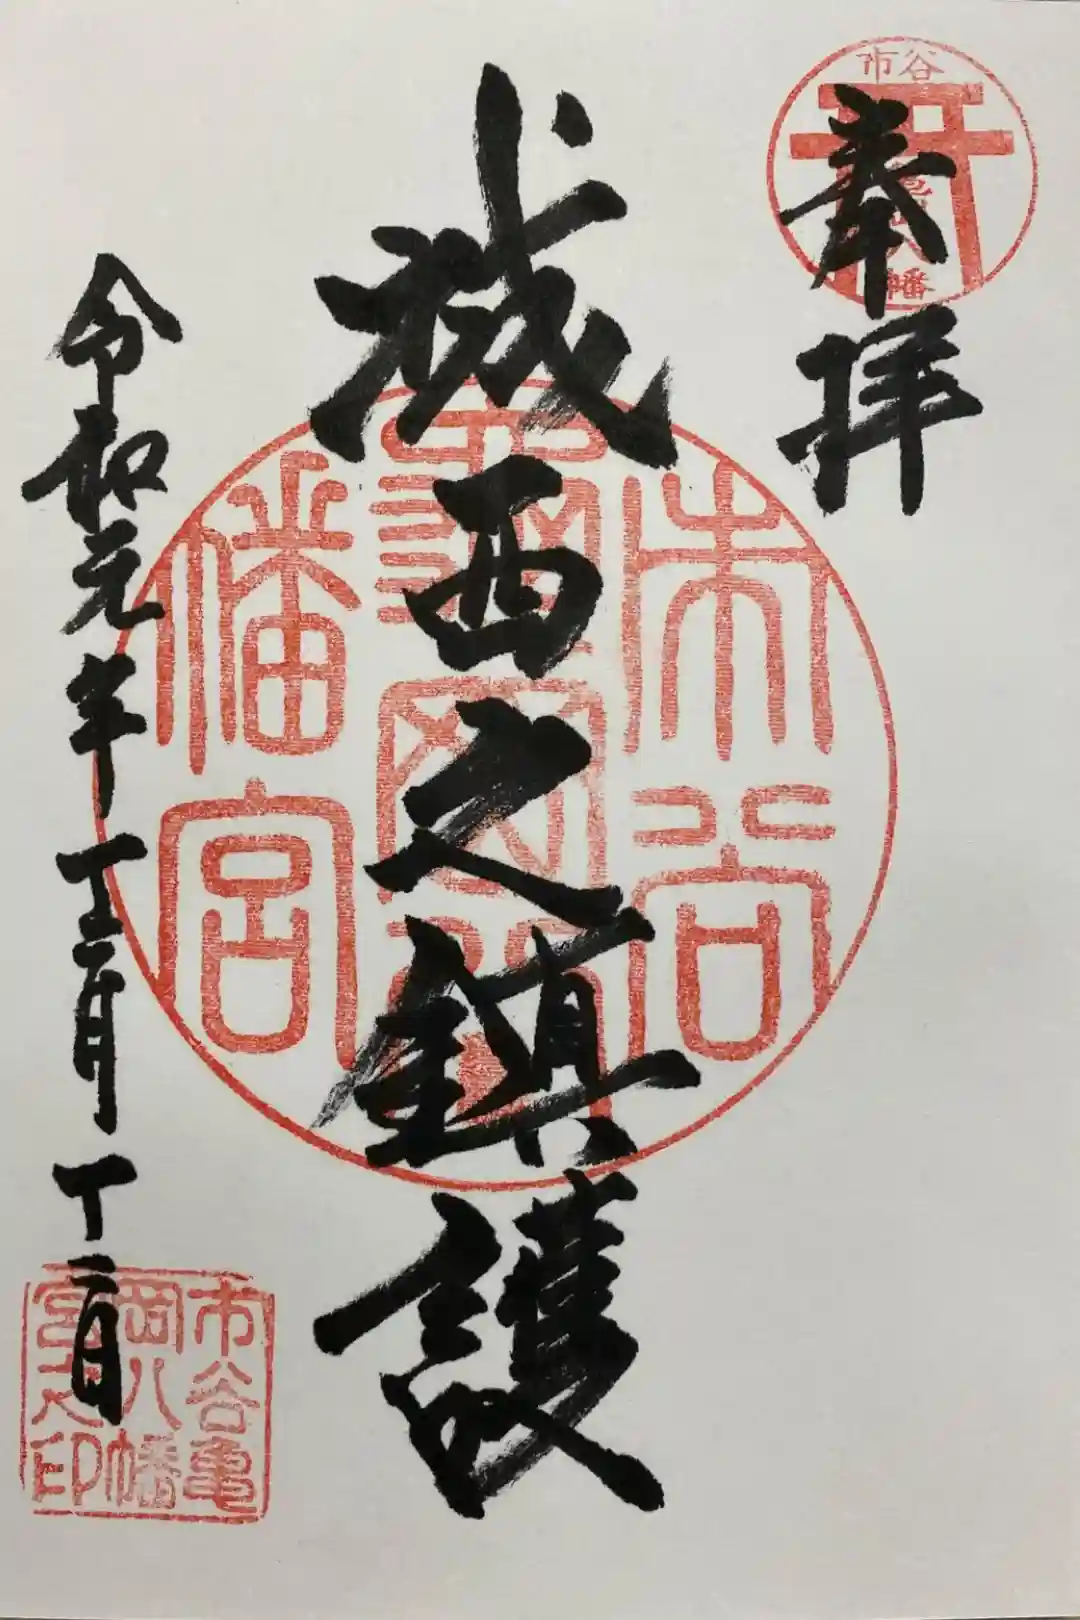 市谷
八幡
奉拝
城西之鎮護
市谷
幡宮
令和元年十二月十二日
市谷亀
岡八幡
宮之印